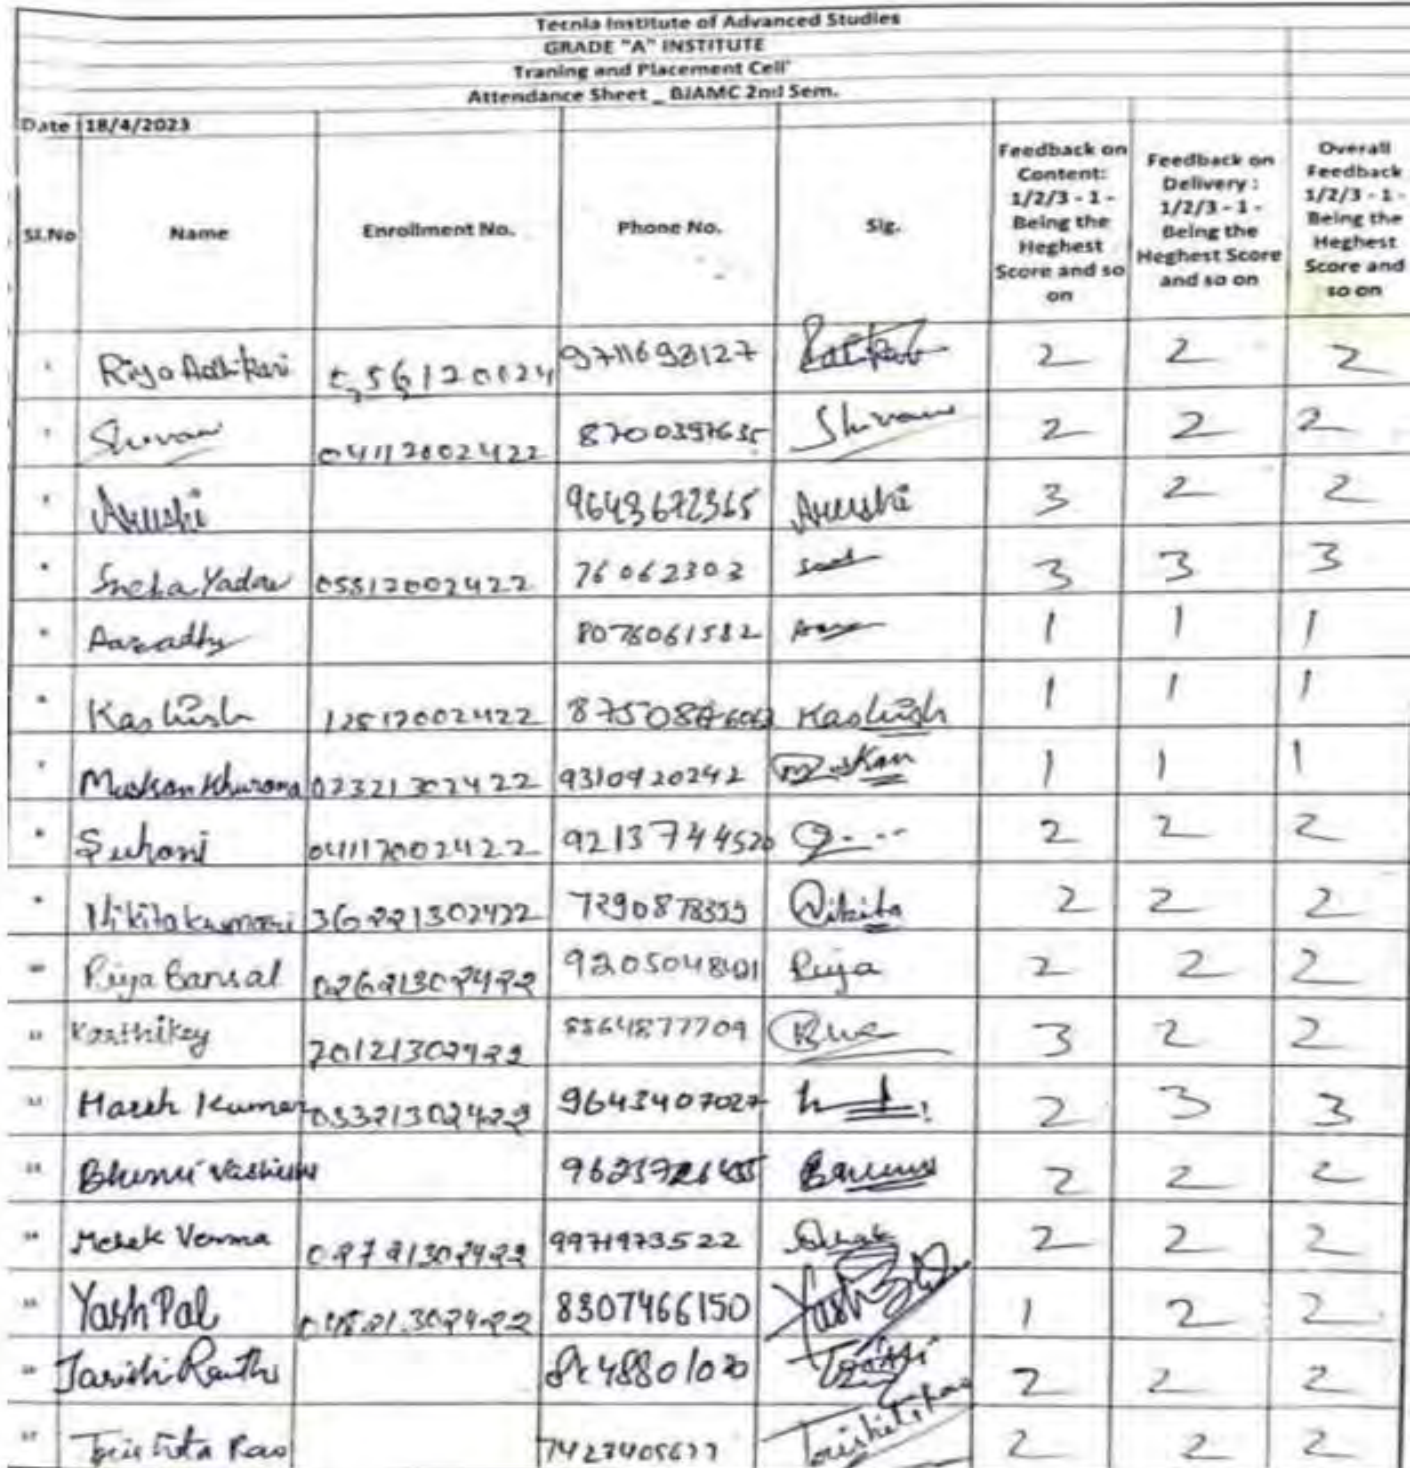 Tecnia Institute of Advanced Studies
GRADE "A" INSTITUTE
Traning and Placement Cell'
Attendance Sheet _ BJAMC 2nd Sem.
Date : 18/4/2023
Sl.No Name Enrollment No. Phone No. Sig. Feedback on Content: 1/2/3 - 1 - Being the Heghest Score and so on Feedback on Delivery : 1/2/3 - 1 - Being the Heghest Score and so on Overall Feedback 1/2/3 - 1 - Being the Heghest Score and so on
1 Riya Adhikari 2 2 2
2 Shivam 04112002422 8700397635 Shivam 2 2 2
3 Arushi 9643672365 Arushi 3 2 2
4 Sneha Yadav 05512002422 76062303 3 3 3
5 Aaradhy 8076061582 1 1 1
6 Kashish 12512002422 Kashish 1 1 1
7 Muskan Khurana 02321302422 9310920242 Muskan 1 1 1
8 Suhani 04117002422 9213744520 2 2 2
9 Nikita kumari 36221302422 7290878359 Nikita 2 2 2
10 Riya Bansal 02621302422 9205048401 Riya 2 2 2
11 Karthikey 20121302422 8864877709 3 2 2
12 Harsh Kumar 03321302422 9643407027 2 3 3
13 2 2 2
14 Mehek Verma 02721302422 9971973522 2 2 2
15 Yash Pal 8307466150 Yash 1 2 2
16 2 2 2
17 Rao 2 2 2